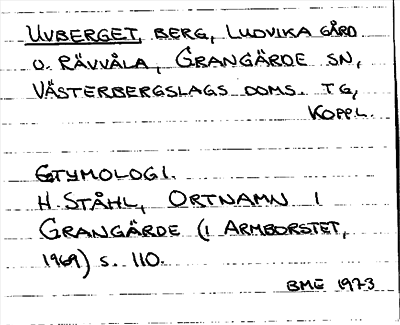 UVBERGET, BERG, LUDVIKA GÅRD
O. RÄVVÅLA, GRANGÄRDE SN,
VÄSTERBERGSLAGS DOMS. TG,
KOPPL.
ETYMOLOGI.
H. STÅHL, ORTNAMN I
GRANGÄRDE (I ARMBORSTET,
1969) S. 110.
BME 1973